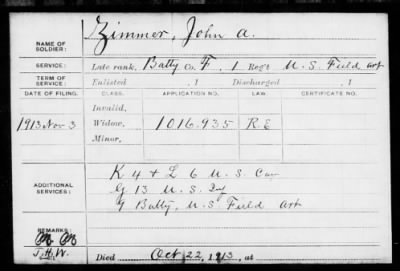 NAME OF SOLDIER: Zimmer, John A.
SERVICE: Late rank, Batty Co. F, 1 Reg't U. S. Field Art
TERM OF SERVICE: Enlisted , 1 Discharged , 1
DATE OF FILING. CLASS. APPLICATION NO. LAW. CERTIFICATE NO.
Invalid,
1913 Nov 3 Widow, 1016.935 R.E
Minor,
ADDITIONAL SERVICES: K 4 & L 6 U. S. Cav
G 13 U. S. Inf
9 Batty, U.S Field Art
REMARKS:
J.H.W. Died Oct 22, 1913, at